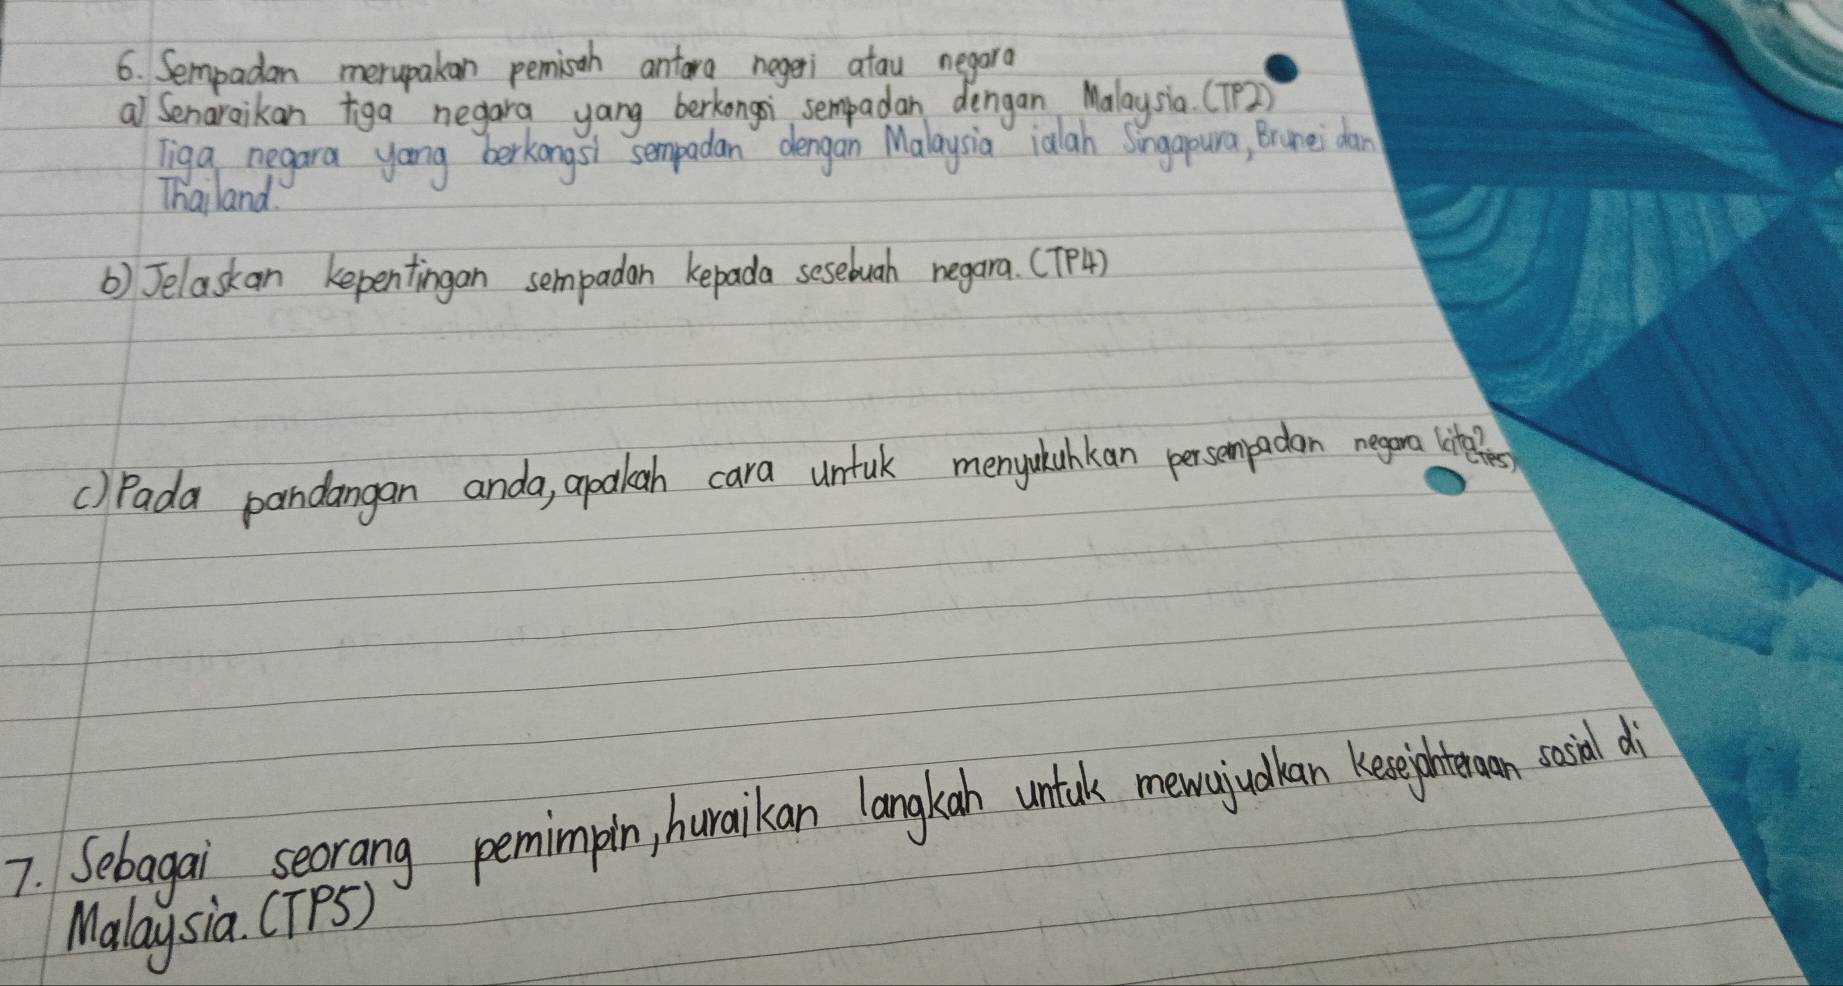 6. Sempadan merupakan pemisah antara negeri atau negara
a) Senaraikan tiga negara yang berkongsi sempadan dengan Malaysia. (TP2)
Tiga negara yang berkongsi sempadan dengan Malaysia ialah Singapura, Brunei dan
Thailand.
b) Jelaskan kepentingan sempadan kepada sesebuah negara. (TP4)
c) Pada pandangan anda, apakah cara untuk menyukuhkan persempadan negara kita?
(TP5)
7. Sebagai seorang pemimpin, huraikan langkah untuk mewujudkan kesejahteraan sosial di
Malaysia. (TP5)